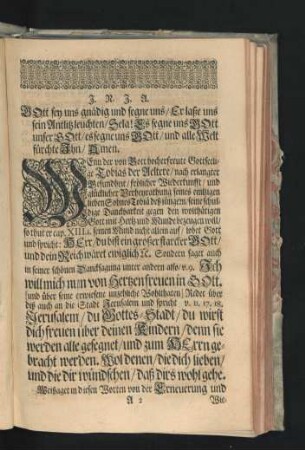 J. N. J. A.
GOtt sey uns gnädig und segne uns/ Er lasse uns
sein Antlitz leuchten/ Sela! Es segne uns GOtt
unser GOtt/ es segne uns GOtt/ und alle Welt
fürchte Jhn/ Amen.
WEnn der von Gott hocherfreute Gottseli-
ge Tobias der Aeltere/ nach erlangter
Gesundheit/ frölicher Wiederkunfft/ und
glücklicher Verheyrathung seines eintzigen
lieben Sohnes Tobiä des jüngern/ seine schul-
dige Danckbarkeit gegen den wohlthätigen
Gott mit Hertz und Munde bezeugen will/
so thut er cap. XIII. seinen Mund nicht allein auf/ lobet Gott
und spricht: HErr/ du bist ein grosser starcker GOtt/
und dein Reich währet ewiglich ⁊c. Sondern saget auch
in seiner schönen Dancksagung unter andern also/ v. 9. Jch
will mich nun von Hertzen freuen in GOtt.
und über seine erwiesene unzehliche Wohlthaten/ Redet über
diß auch an die Stadt Jerusalem und spricht v. 11. 17. 18.
Jerusalem/ du Gottes-Stadt/ du wirst
dich freuen über deinen Kindern/ denn sie
werden alle gesegnet/ und zum HErrn ge-
bracht werden. Wol denen/ die dich lieben/
und die dir wündschen/ daß dirs wohl gehe.
Weissaget in diesen Worten von der Erneuerung und
A 2 Wie-